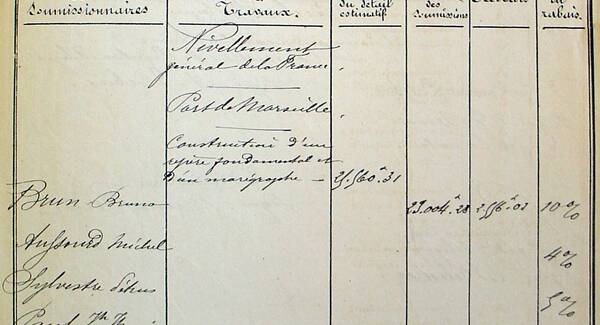 Soumissionnaires
Travaux.
du détail
estimatif
des
soumissions
du
rabais.
Nivellement
général de la France.
Port de Marseille.
Construction d'un
repère fondamental et
d'un marégraphe — 25.560.31
Brun Bruno 23.004.28 2.556.03 10%
Aussourd Michel 4%
Sylvestre 5%
Paul